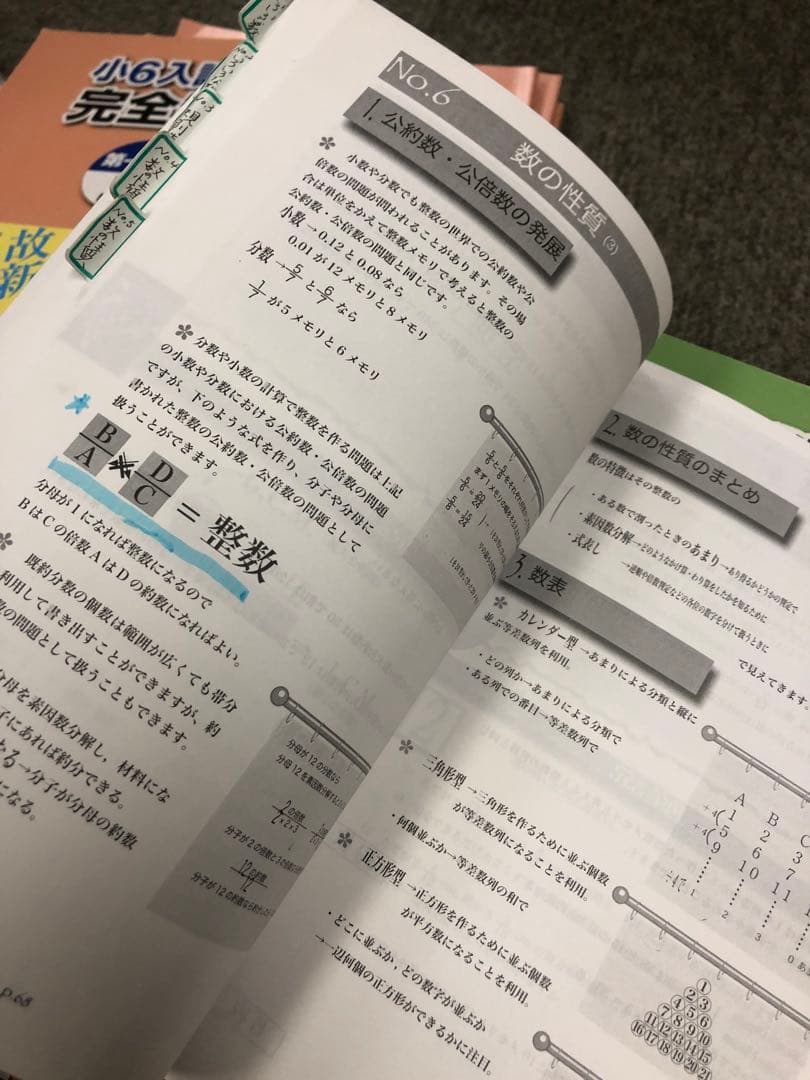 小6入試
完全
第一
故
新
No.3
No.4
数の性質
No.5
数の性質
No.6
数の性質(3)
1. 公約数・公倍数の発展
小数や分数でも整数の世界での公約数や公
倍数の問題が問われることがあります。その場
合は単位をかえて整数メモリで考えると整数の
公約数・公倍数の問題と同じです。
小数→0.12と0.08なら
0.01が12メモリと8メモリ
分数→5/7と6/7なら
1/7が5メモリと6メモリ
分数や小数の計算で整数を作る問題は上記
の小数や分数における公約数・公倍数の問題
ですが、下のような式を作り、分子や分母に
書かれた整数の公約数・公倍数の問題として
扱うことができます。
B/A × D/C = 整数
分母が1になれば整数になるので
BはCの倍数AはDの約数になればよい。
既約分数の個数は範囲が広くても帯分
利用して書き出すことができますが、約
数の問題として扱うこともできます。
分母を素因数分解し、材料にな
子にあれば約分できる。
とる→分子が分母の約数
になる。
分母が12の分数なら
分母12を素因数分解すると
2の倍数
2×2×3
分子が2の倍数と3の倍数
12の約数
12
分子が12の約数なら
p.68
2. 数の性質のまとめ
数の特徴はその整数の
・ある数で割ったときのあまり→あり得るかどうかの判定で
・素因数分解→どのようなかけ算・わり算をしたかを知るために
・式表し
→逆順や倍数判定などの各位の数字を分けて扱うときに
で見えてきます。
3. 数表
カレンダー型→あまりによる分類と縦に
並ぶ等差数列を利用。
・どの列か→あまりによる分類で
・ある列での番目→等差数列で
三角形型→三角形を作るために並ぶ個数
が等差数列になることを利用。
・何個並ぶか→等差数列の和で
正方形型→正方形を作るために並ぶ個数
が平方数になることを利用。
・どこに並ぶか，どの数字が並ぶか
→一辺何個の正方形ができるかに注目。
A B C
+4 1 2 3
+4 5 6 7
9 10 11
÷4
1 2 3 0
1
2 3
4 5 6
7 8 9 10
11 12 13 14 15
16 17 18 19 20 21